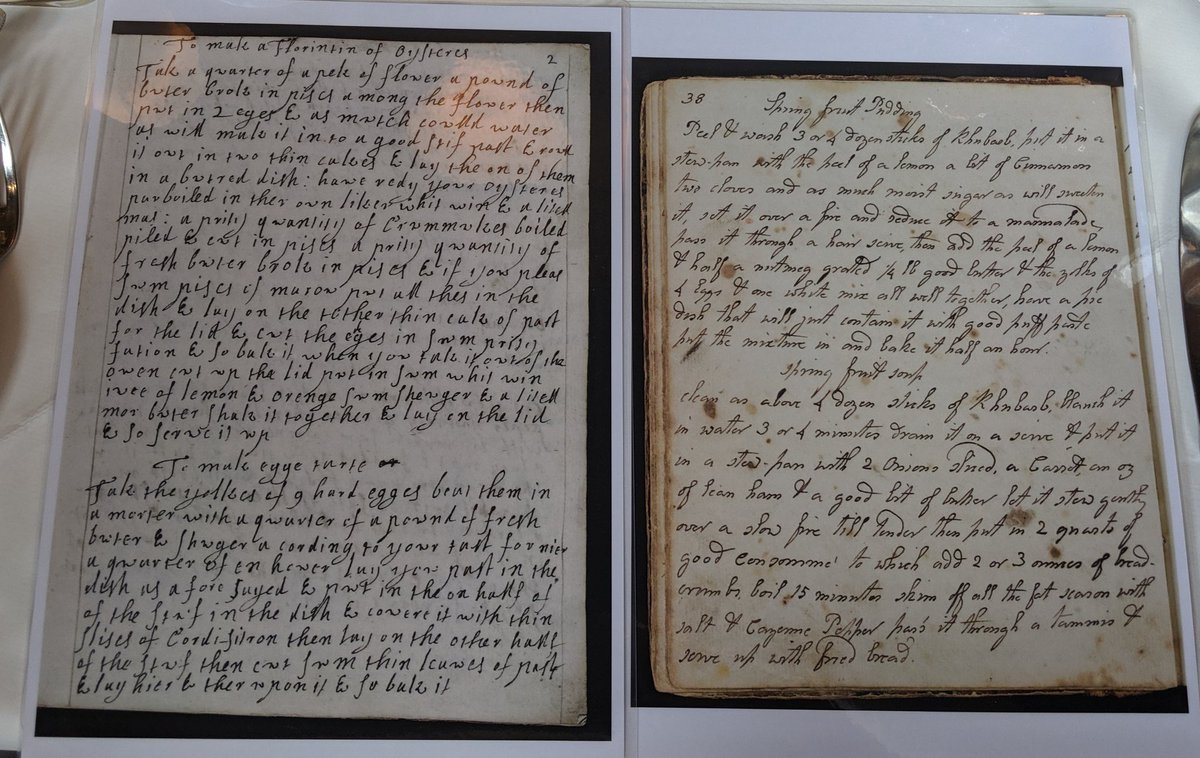 To make a florintin of Oysteres
2
Take a quarter of a peke of flower a pownd of
buter broke in pises a mong the flower then
put in 2 eges & as mutch could water
as will make it in to a good stif past & rowl
it out in two thin cakes & lay the on of them
in a butred dish: have redy your oysteres
parboiled in ther own liker whit win & a litell
mas: a prity quantity of Crummukes boiled
piled & cut in pises a prity quantity of
fresh buter broke in pises & if you pleas
sum pises of marow put all thes in the
dish & lay on the tother thin cake of past
for the lid & cut the eges in sum prity
fation & so bake it when you take it out of the
owen cut up the lid put in sum whit win
iuce of lemon & orenge sum shuger & a litell
mor buter shake it together & lay on the lid
& so serve it up
To make egge tarte
Take the yelkes of 9 hard egges beat them in
a morter with a quarter of a pound of fresh
buter & shuger a cording to your tast for nier
a quarter of en hower lay your past in the
dish as a fore sayed & put in the on half of
of the stuf in the dish & covere it with thin
slises of Cordisitron then lay on the other half
of the stuf then cut sum thin leaves of past
& lay hier & ther upon it & so bake it
38
Spring fruit Pudding
Peel & wash 3 or 4 dozen sticks of Rhubarb, put it in a
stew-pan with the peel of a lemon a bit of Cinnamon
two cloves and as much moist sugar as will sweeten
it, set it over a fire and reduce it to a marmalade,
pass it through a hair seive, then add the peel of a lemon
& half a nutmeg grated ¼ lb good butter & the yolks of
4 Eggs & one white mix all well together, have a pie
dish that will just contain it with good puff paste
put the mixture in and bake it half an hour.
Spring fruit soup
clean as above 4 dozen sticks of Rhubarb, blanch it
in water 3 or 4 minutes drain it on a seive & put it
in a stew-pan with 2 Onions sliced, a Carrot, an oz
of lean ham & a good bit of butter let it stew gently
over a slow fire till tender then put in 2 quarts of
good Consommé to which add 2 or 3 ounces of bread-
crumbs, boil 15 minutes skim off all the fat season with
salt & Cayenne Pepper pass it through a tammis &
serve up with fried bread.